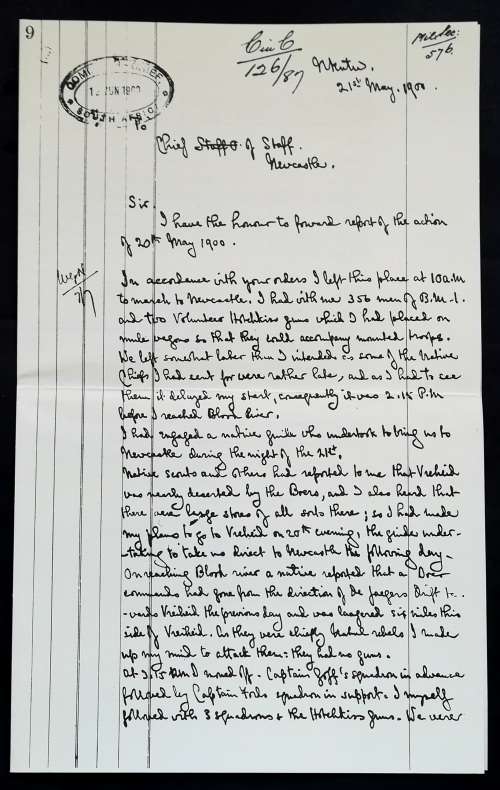 9
C in C
126/87
Nkutu.
21st May. 1900.
576.
JUN 1900
SOUTH AFRIC
Chief Staff O of Staff.
Newcastle.
Sir.
I have the honour to forward report of the action
of 20th May 1900.
In accordance with your orders I left this place at 10 a.m
to march to Newcastle. I had with me 356 men of B.M.I.
and two Volunteer Hotchkiss guns which I had placed on
mule wagons so that they could accompany mounted troops.
We left somewhat later than I intended as some of the Native
Chiefs I had sent for were rather late, and as I had to see
them it delayed my start, consequently it was 2.15 P.M
before I reached Blood River.
I had engaged a native guide who undertook to bring us to
Newcastle during the night of the 21st.
Native scouts and others had reported to me that Vreheid
was nearly deserted by the Boers, and I also heard that
there were large stores of all sorts there; so I had made
my plans to go to Vreheid on 20th evening, the guide under-
-taking to take me direct to Newcastle the following day.
On reaching Blood river a native reported that a Boer
commando had gone from the direction of De Jaegers Drift to-
-wards Vreiheid the previous day and was laagered six miles this
side of Vreiheid. As they were chiefly Natal rebels I made
up my mind to attack them: they had no guns.
At 3.15 P.M I moved off. Captain Goff's squadron in advance
followed by Captain squadron in support. I myself
followed with 3 squadrons & the Hotchkiss guns. We were